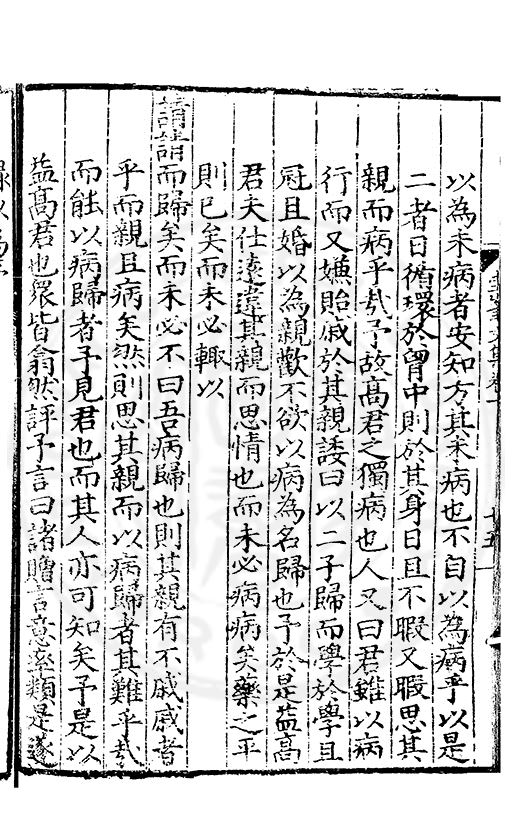 以為未病者安知方其未病也不自以為病乎以是
二者日循環於胷中則於其身日且不暇又暇思其
親而病乎哉予故高君之獨病也人又曰君雖以病
行而又嫌貽戚於其親諉曰以二子歸而學於學且
冠且婚以為親歡不欲以病為名歸也予於是益高
君夫仕遠違其親而思情也而未必病病矣藥之平
則已矣而未必輒以
請請而歸矣而未必不曰吾病歸也則其親有不戚戚者
乎而親且病矣然則思其親而以病歸者其難乎哉
而能以病歸者予見君也而其人亦可知矣予是以
益高君也衆皆翕然評予言曰諸贈言意率類是遂